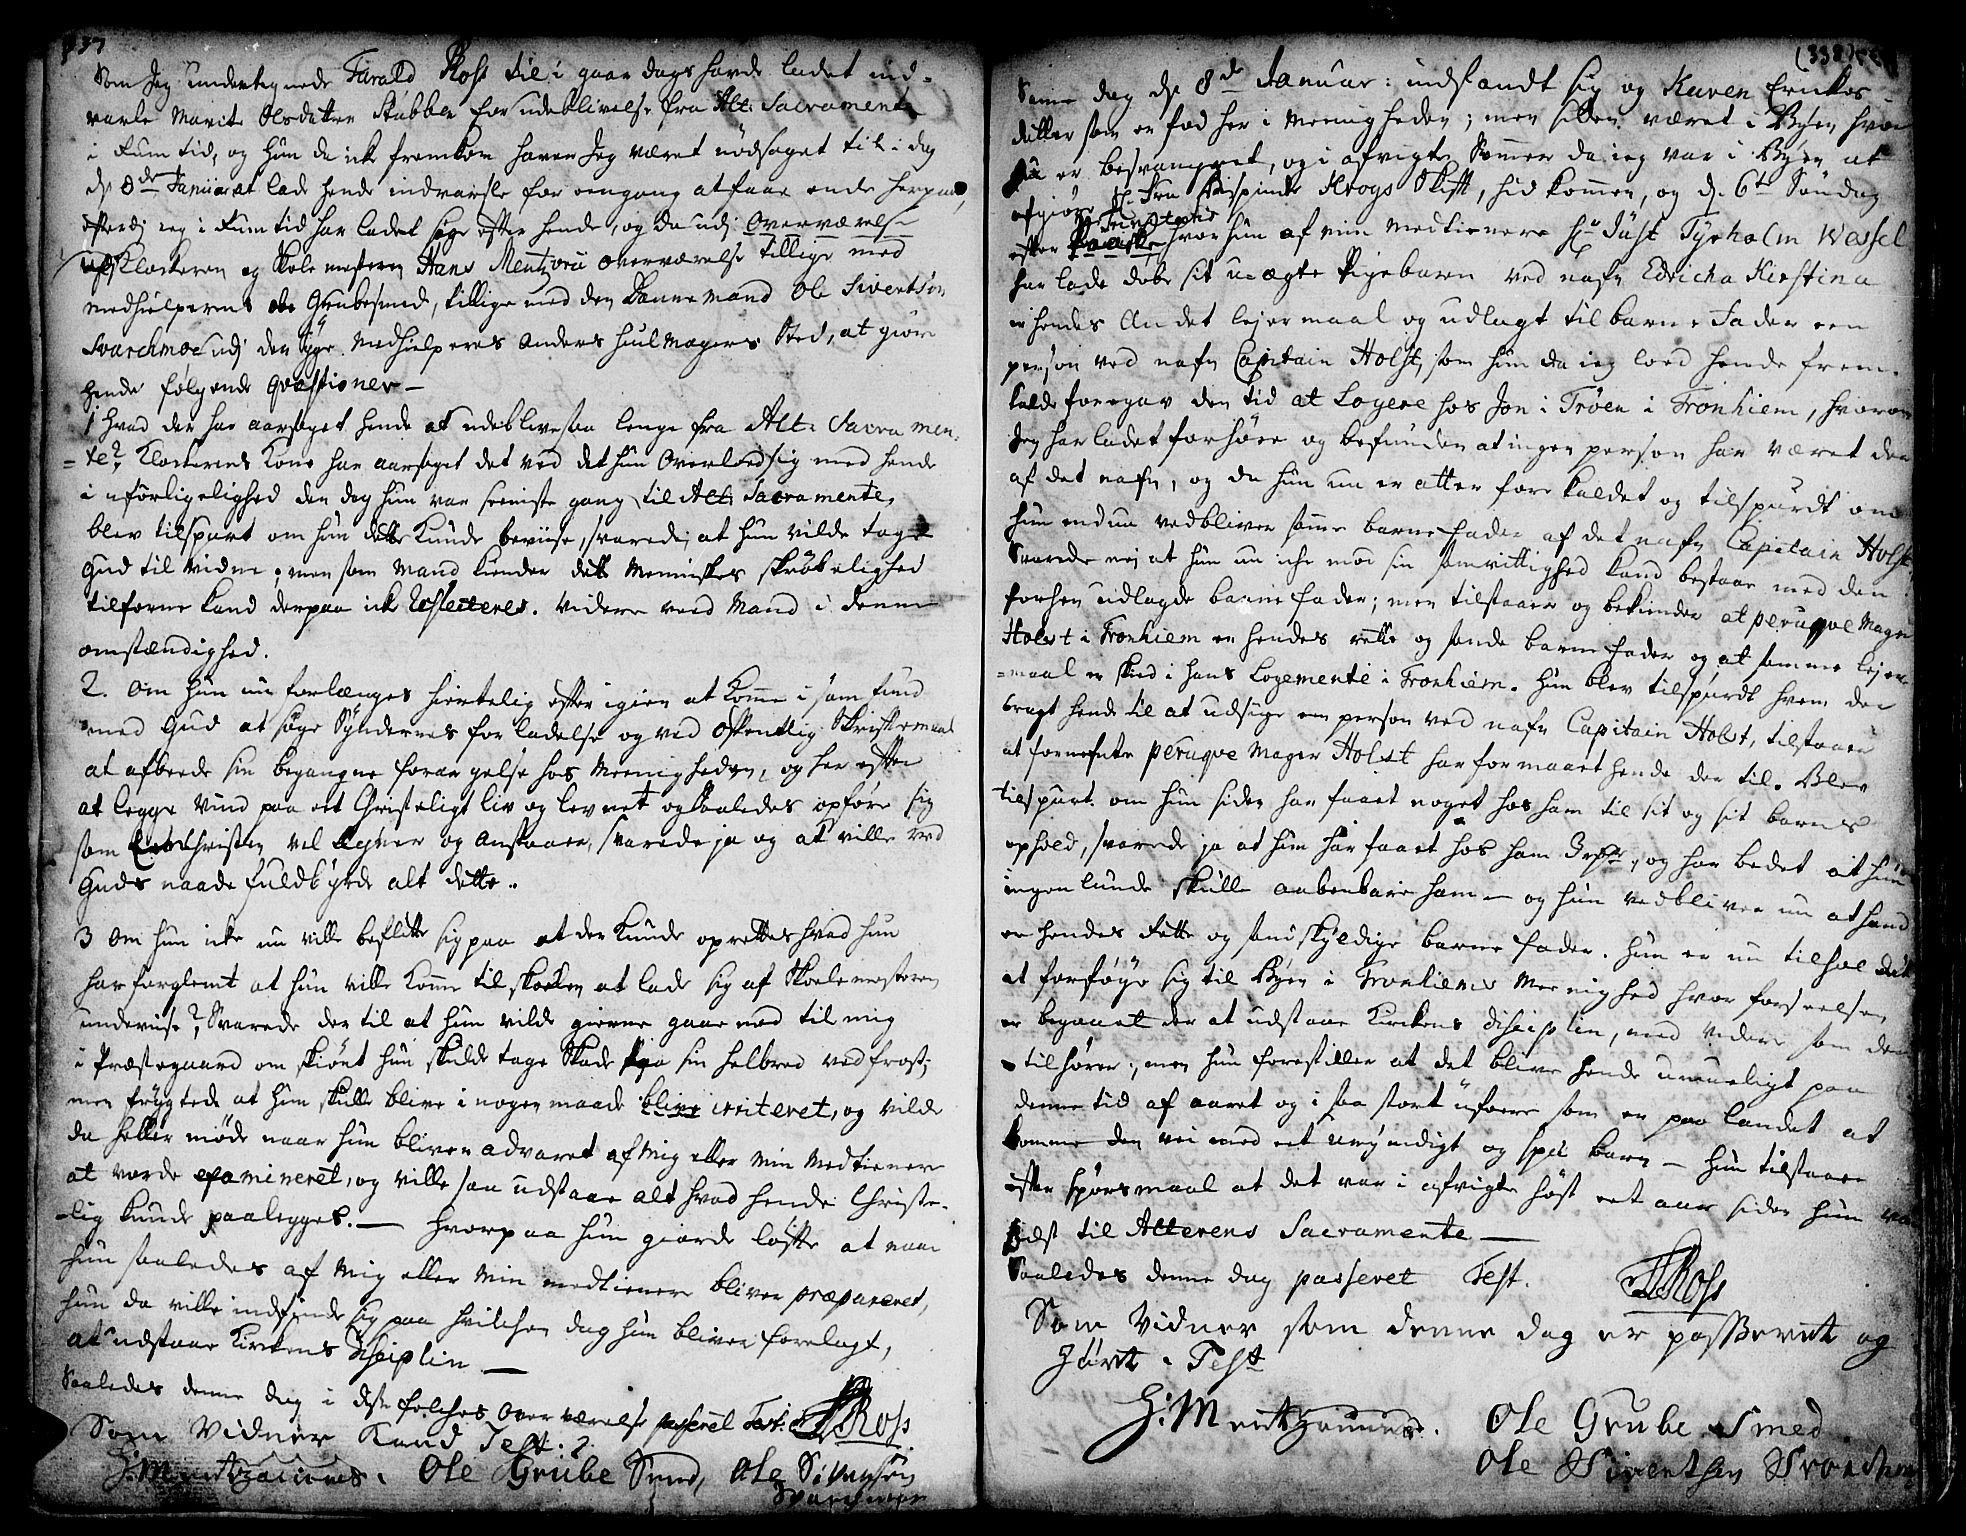 337
Som Jeg undertegnede Farald Ross til i gaar dags havde ladet ind-
varle Marite Olsdatter Stubben for udeblivelse fra Alt: Sacramente
i Rum tid, og hun da ick fremkom haver Jeg været nödsaget til i dag
d. 8de Januar at lade hende indvarsle for omgang at faae ende herpaa,
efterdj jeg i Rum tid har ladet söge efter hende, og da udj Overværelse
af Klockeren og Skole mesteren Hans Mentzoni overværelse tillige med
medhielperne Ole Grubesmed, tillige med den Danne mand Ole Sivertsön
Svarchmoe udj den syge Medhielperes Anders Huulmagers Sted, at giöre
hende fölgende Qvæstioner —
1 Hvad der har aarsaget hende at udeblive saa lenge fra Alt: Sacramen-
=te? Klockerens Kone har aarsaget det ved det hun Overloed sig med hende
i uforligelighed den dag hun var seeniste gang til Alt: Sacramente,
blev tilspurt om hun dette Kunde beviise, svarede; at hun vilde tage
Gud til Vidne; men som Mand kiender dette Menniskes skröbelighed
tilforne kand derpaa ick reflecteres. Videre veed Mand i denne
omstændighed.
2. Om hun nu forlænges hiertelig efter igien at komme i samfund
med Gud at söge Syndernes forladelse og ved offentlig Skriftemaal
at afbeede sin begangne forargelse hos Meenigheden, og her efter
at legge Vind paa eet Christeligt liv og levnet og saaledes opföre sig
som Christen vel egner og anstaaer, svarede ja og at ville ved
Guds naade fuldbyrde alt dette.
3 Om hun icke nu ville beflitte sig paa at der kunde oprettes hvad hun
har forglemt at hun ville komme til skoelen at lade sig af Skolemesteren
underviise? Svarede der til at hun vilde gierne gaae ned til mig
i Præstegaard om skiönt hun skulde tage Skade paa sin helbred ved frost;
men frygtede at hun skulle blive i nogen maade blive irriteret, og vilde
da heller möde naar hun bliver advaret af Mig eller Min Medtienere
at vorde examineret, og ville saa udstaae alt hvad hende Christe-
-lig kunde paalegges. — Hvorpaa hun giorde löfte at naar
hun saaledes af Mig eller Min medtienere bliver præpareret,
hun da ville indfinde sig paa hvilchen dag hun bliver forelagt,
at udstaae Kirkens Disciplin —
Saaledes denne dag i disse folches Overværelse passeret Test: FRoss
Som Vidner Kand Test:
H: Mentzonius. Ole Grube Smed, Ole Siversön
Svarchmoe
(338)
Samme dag d. 8de Januar: indfandt sig og Karen Erichs-
datter som er föd her i Meenigheden; men siden været i Byen hvor
hun er besvangret, og i afvigte Sommer da jeg var i Byen at
afgiöre Sl. Fru Bispinde Krogs Skifte, hid kommen, og d. 6te Söndag
efter Trinitatis hvor hun af min Medtienere Hr Just Tyrholm Wessel
har lade döbe sit uægte Pigebarn ved nafn Edricha Kirstina
er hendes Andet lejermaal og udlagt til barne Fader een
person ved nafn Capitain Holst, som hun da jeg loed hende frem-
kalde foregav den tid at Logere hos Jon i Tröen i Tronhiem, hvorom
Jeg har ladet forhöre og befunden at ingen person har været der
af det nafn, og da hun nu er atter fore kaldet og tilspurdt om
hun endnu vedbliver samme barnefader af det nafn Capitain Holst,
Svarede nej at hun nu iche mod sin Samvittighed kand bestaae med den
forhen udlagde barnefader; men tilstaaer og bekiender at peruqve Mager
Holst i Tronhiem er hendes rette og sande barnefader og at samme lejer-
=maal er skeed i hans Logemente i Tronhiem. Hun blev tilspurdt hvem der
bragt hende til at udsige een person ved nafn Capitain Holst, tilstaaer
at fornefnte peruqve Mager Holst har formaaet hende der til. Blev
tilspurt om hun siden har faaet noget hos ham til sit og sit barns
ophold, svarede ja at hun har faaet hos ham 3 rdr, og har bedet at hun
ingenlunde skulle aabenbare ham — og hun vedbliver nu at hand
er hendes rette og sandskyldige barnefader. Hun er nu tilholdet
at forföye sig til Byen i Tronhiems Meenighed hvor forseelsen
er begaaet der at udstaae Kirckens disciplin, med videre som der
tilhörer; men hun forestiller at det bliver hende umueligt paa
denne tid af aaret og i saa stort ufoere som er paa landet at
komme den vei med eet umyndigt og spæt barn — Hun tilstaaer
efter spörsmaal at det var i afvigte höst eet aar siden hun var
sidst til Alterens Sacramente —
Saaledes denne dag passeret Test. FRoss
Som Vidner som denne dag er passeret og
hört. Test
H: Mentzonius. Ole Grube Smed.
Ole Sivertsen Svarchmoe